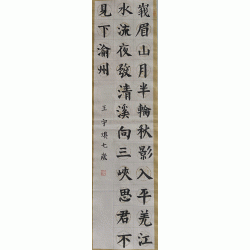 峩眉山月半輪秋影入平羌江
水流夜發清溪向三峽思君不
見下渝州
王宇七歲